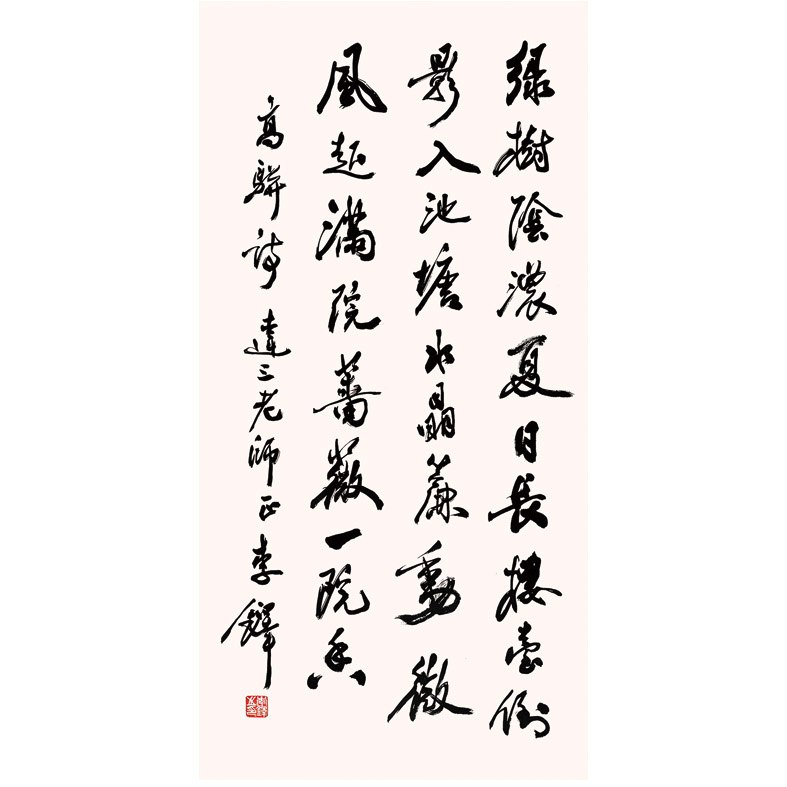 绿樹陰濃夏日長樓臺倒
影入池塘水晶簾動微
風起滿院薔薇一院香
高駢詩 達三老師正 李鐸